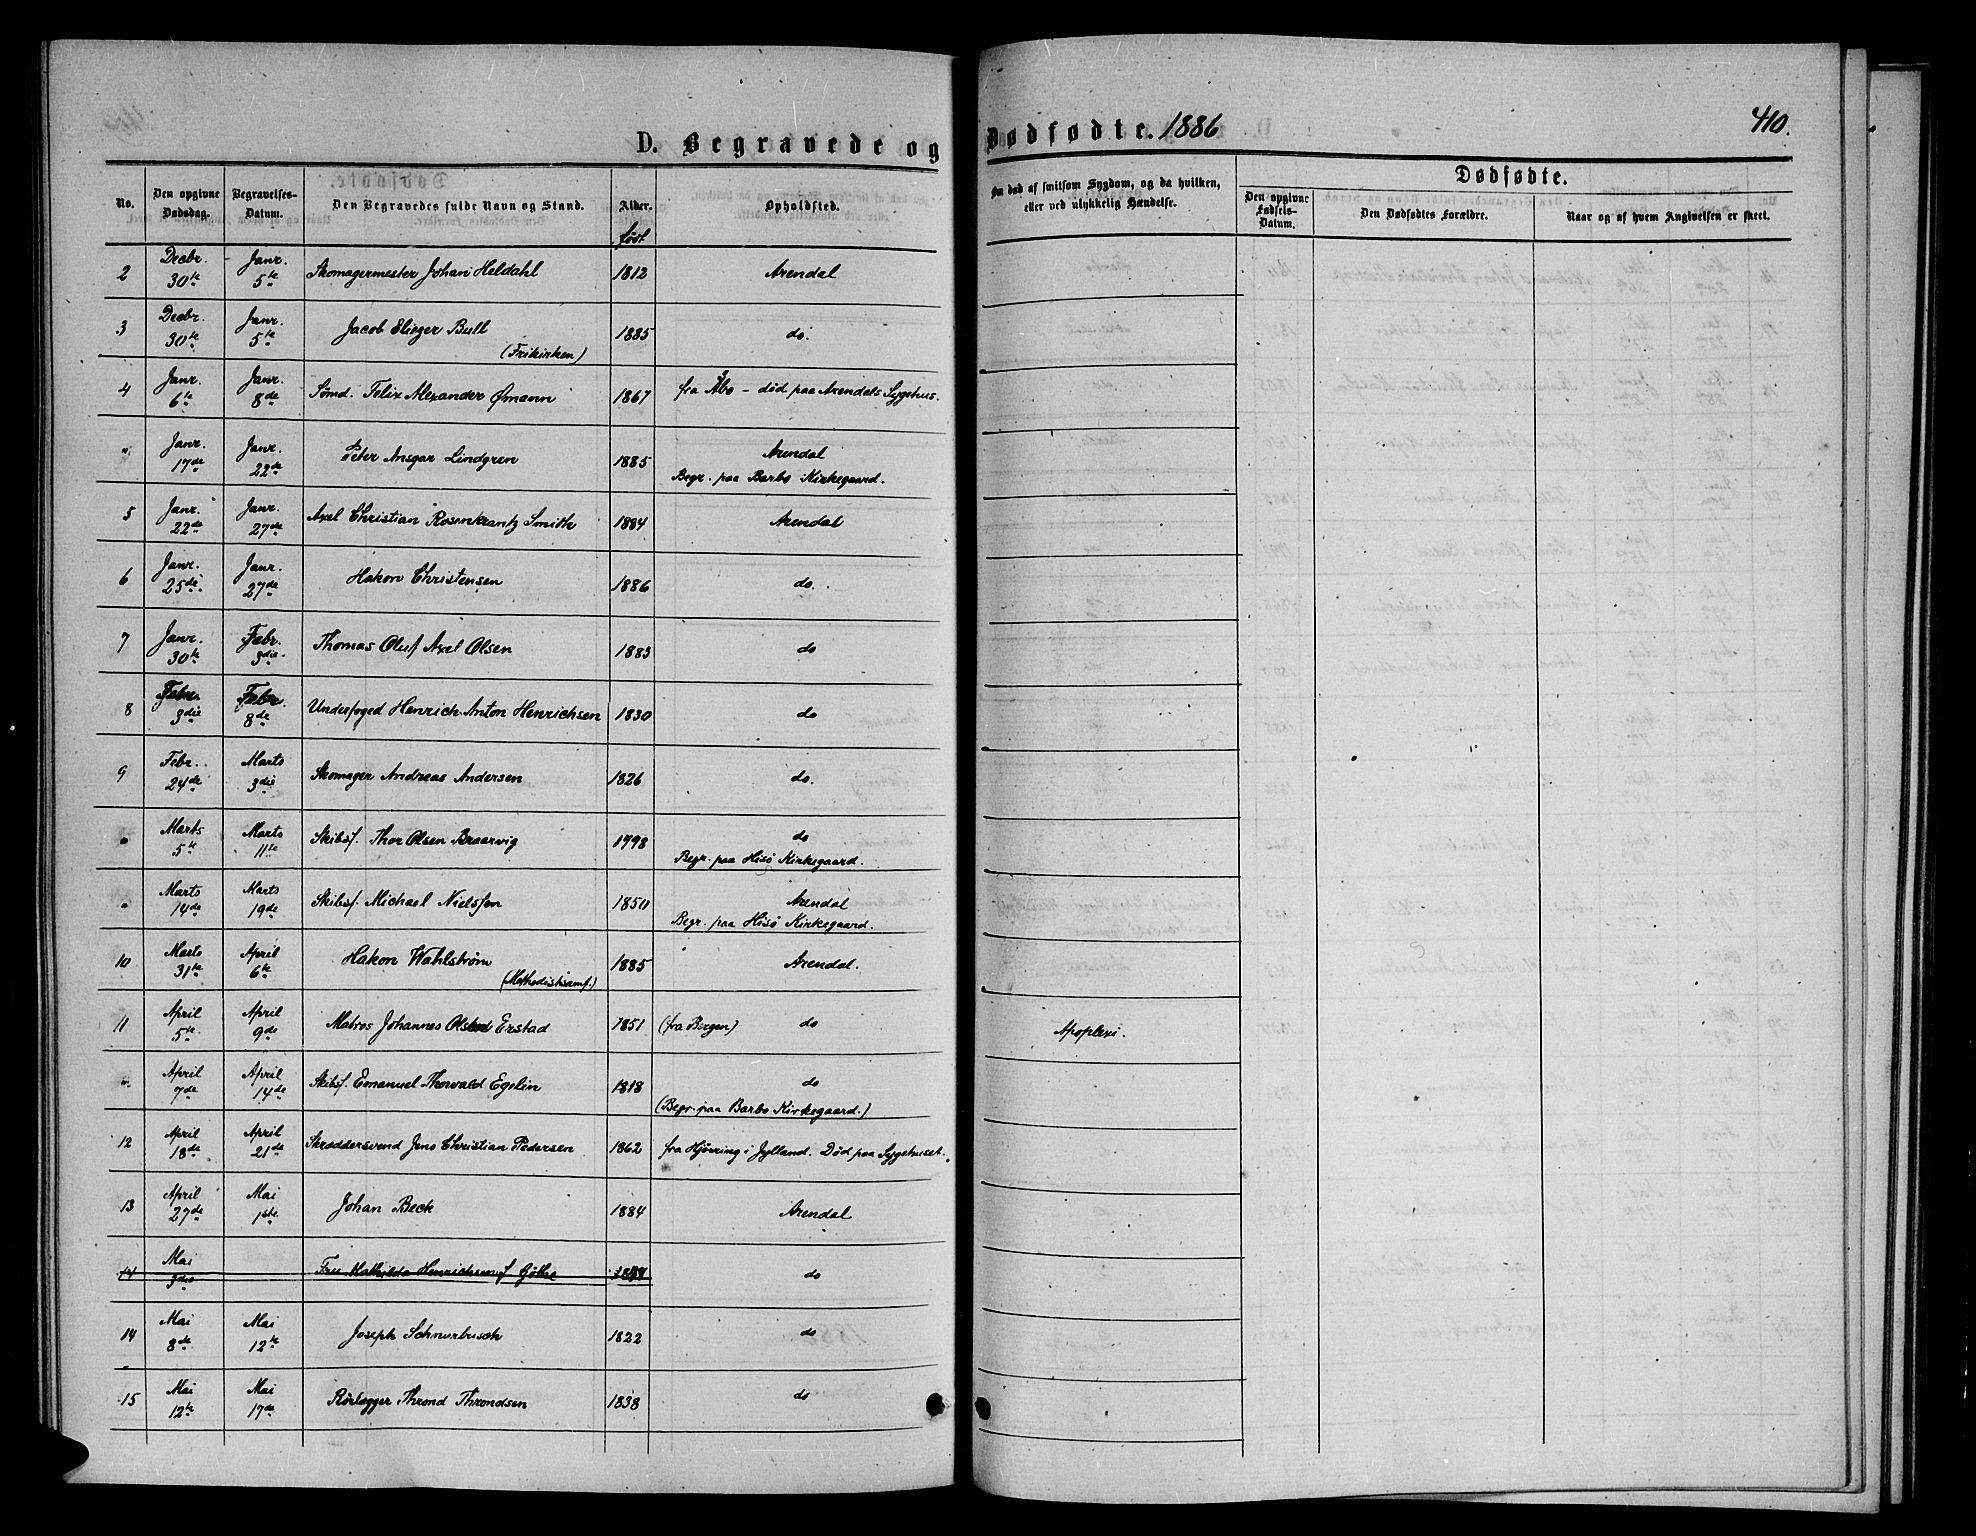 D. Begravede og Dødfødte. 1886
410.
No.
Den opgivne Dødsdag.
Begravelses-Datum.
Den Begravedes fulde Navn og Stand.
Alder.
født
Opholdsted.
Om død af smitsom Sygdom, og da hvilken,
eller ved ulykkelig Hændelse.
Dødfødte.
Den opgivne Fødsels-Datum.
Den Dødfødtes Forældre.
Naar og af hvem Angivelsen er skeet.
2 Decbr. 30te Janr. 5te Skomagermester Johan Heldahl 1812 Arendal
3 Decbr. 30te Janr. 5te Jacob Elieger Bull 1885 do.
(Frikirken)
4 Janr. 6te Janr. 8de Sømd. Felix Alexander Ømann 1867 fra Åbo - død paa Arendals Sygehus.
" Janr. 17de Janr. 22de Peter Ansgar Lindgren 1885 Arendal
Begr. paa Barbo Kirkegaard.
5 Janr. 22de Janr. 27de Axel Christian Rosenkrantz Smith 1884 Arendal
6 Janr. 25de Janr. 27de Hakon Christensen 1886 do.
7 Janr. 30te Febr. 3die Thomas Oluf Axel Olsen 1883 do
8 Febr. 3die Febr. 8de Underfoged Henrich Anton Henrichsen 1830 do
9 Febr. 24de Marts 3die Skomager Andreas Andersen 1826 do.
" Marts 5te Marts 11te Skibsf. Thor Olsen Braarvig 1798 do
Begr. paa Hisö Kirkegaard.
" Marts 14de Marts 19de Skibsf. Michael Nielsen 1850 Arendal
Begr. paa Hisö Kirkegaard.
10 Marts 31te April 6te Hakon Wahlstrøm 1885 Arendal.
(Methodistsamf.)
11 April 5te April 9de Matros Johannes Erstad 1851 (fra Bergen) do Apoplexi.
" April 7de April 14de Skibsf. Emanuel Thorvald Egelin 1818 do
(Begr. paa Barbo Kirkegaard.)
12 April 18de April 21de Skræddersvend Jens Christian Pedersen 1862 fra Hjörring i Jylland. Död paa Sygehuset.
13 April 27de Mai 1ste Johan Beck 1884 Arendal
14 Mai 3die Fru Mathilda Henrichsen f. Göthe do
14 Mai 8de Mai 12te Joseph Schnurbusch 1822 do
15 Mai 12te Mai 17de Rörlægger Thrond Throndsen 1838 do